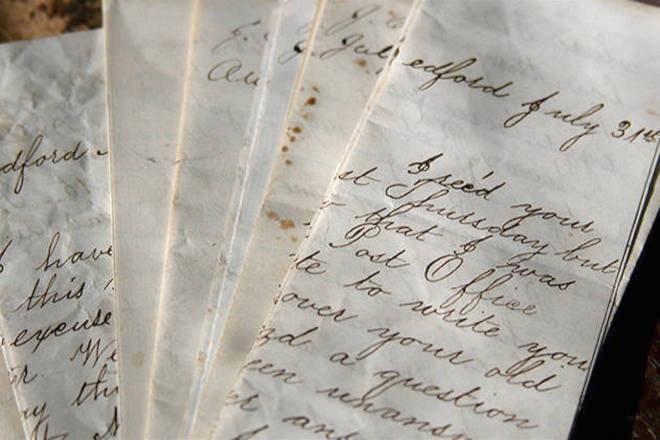 dford
I have
this
excuse
r. We
ay thi
J.
Au
J.
July
edford July 31st
I rec'd your
st Thursday but
that I was
Post Office
te to write you
over your old
nd a question
een unansw
er an